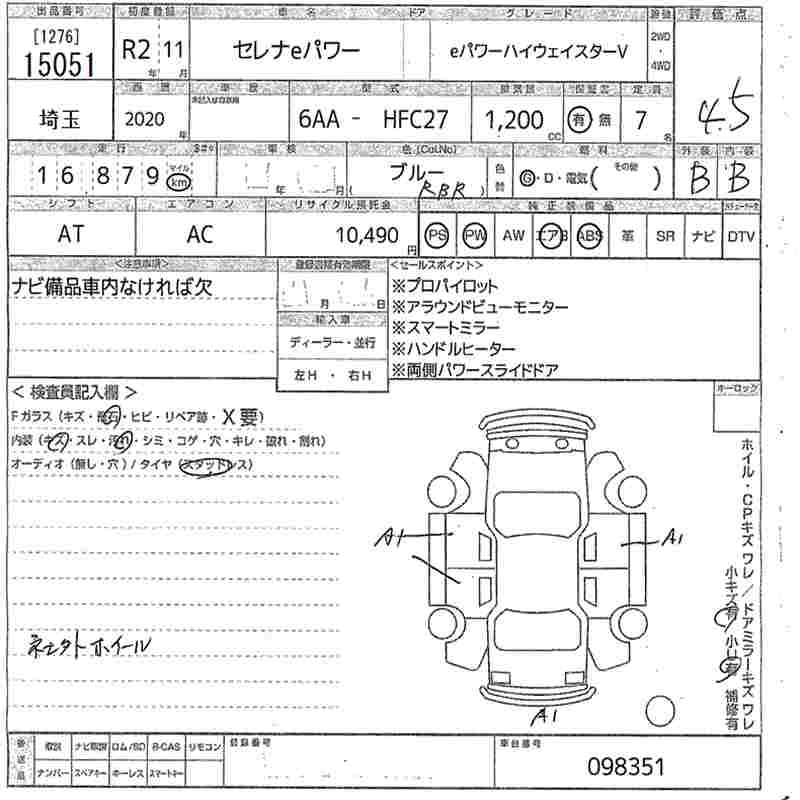 出品番号 初度登録 車名 ドア グレード 駆動 評価点
[1276]
15051 R2 11 セレナeパワー eパワーハイウェイスターV 2WD・4WD 4.5
年 月
西暦 車歴 型式 排気量 保証書 定員
埼玉 2020 年 6AA - HFC27 1,200 CC 有 無 7 名
走行 車検 色(Col.No) 燃料 外装 内装
16879 マイル km 年 月( ブルー RBR ) 色替 G・D・電気( その他 ) B B
シフト エアコン リサイクル預託金 純正装備品
AT AC 10,490 円 PS PW AW エアB ABS 革 SR ナビ DTV
<注意事項> 登録書類有効期限 <セールスポイント>
ナビ備品車内なければ欠
月 日
※プロパイロット
※アラウンドビューモニター
※スマートミラー
※ハンドルヒーター
※両側パワースライドドア
輸入車
ディーラー・並行
左H ・ 右H
<検査員記入欄> オーロック
Fガラス(キズ・飛石・ヒビ・リペア跡・X要)
内装(キズ・スレ・汚れ・シミ・コゲ・穴・キレ・破れ・割れ)
オーディオ(無し・穴)/タイヤ(スタッドレス)
A1 A1
A1
ホイル・CPキズワレ/ドアミラーキズワレ
小キズ有 小凹有 補修有
ホイール
後送品 取説 ナビ取説 ロム/SD B-CAS リモコン 登録番号 車台番号
ナンバー スペアキー ホーレス スマートキー 098351